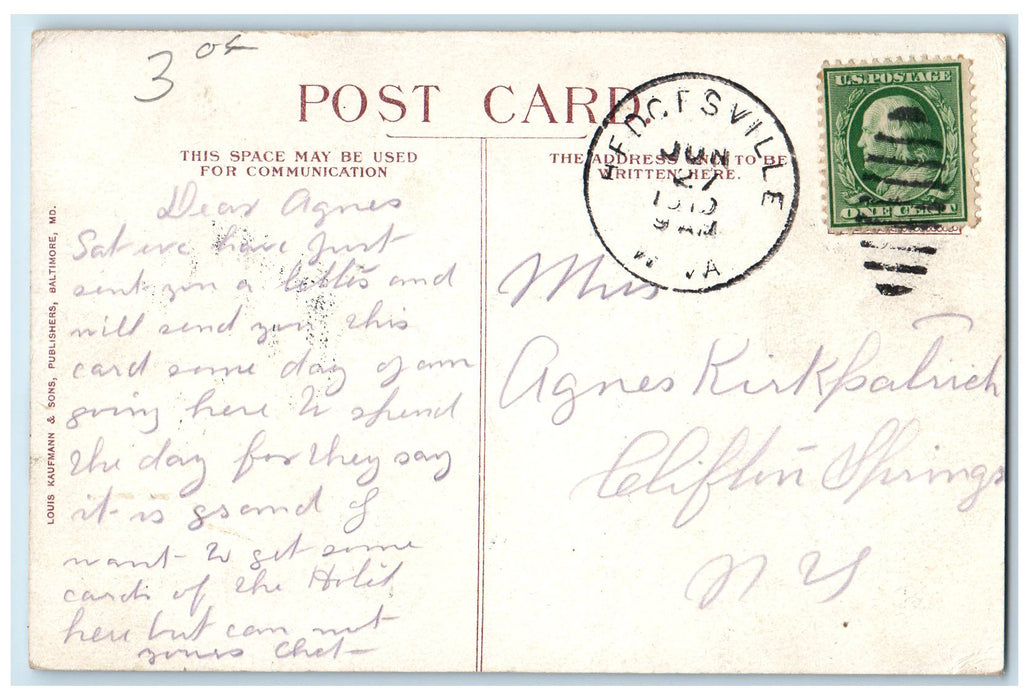 3 05
POST CARD.
THIS SPACE MAY BE USED
FOR COMMUNICATION
THE ADDRESS ONLY TO BE
WRITTEN HERE.
HEDGESVILLE
JUN
27
9 AM
W. VA
U.S. POSTAGE
ONE CENT
LOUIS KAUFMANN & SONS, PUBLISHERS, BALTIMORE, MD.
Dear Agnes
Sat eve have just
sent you a letter and
will send you this
card some day I am
going here to spend
the day for they say
it is grand I
want to get some
cards of the Hotel
here but can not
yours Chet
Miss
Agnes Kirkpatrick
Clifton Springs
N Y